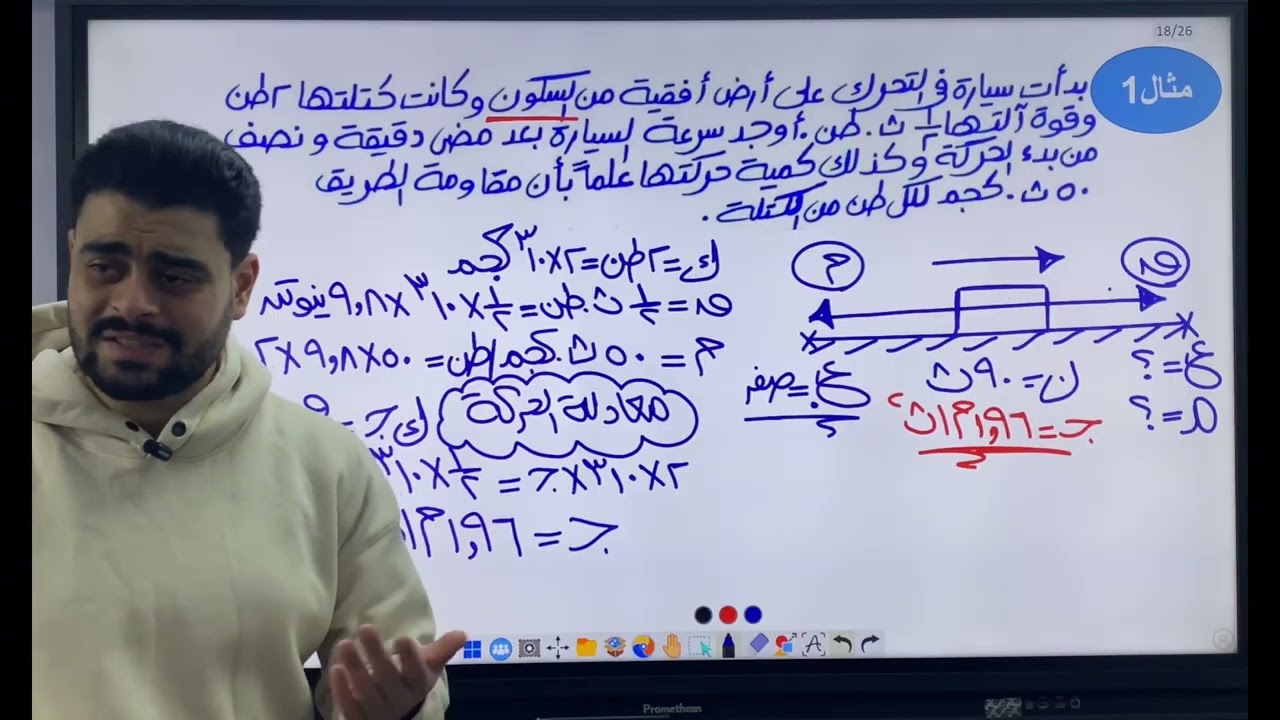 18/26
مثال 1
بدأت سيارة في التحرك على أرض أفقية من السكون وكانت كتلتها ٢ طن
وقوة آلتها ١/٢ ث.طن. أوجد سرعة السيارة بعد مضي دقيقة ونصف
من بدء الحركة وكذلك كمية حركتها علماً بأن مقاومة الطريق
٥٠ ث.كجم لكل طن من الكتلة.
ك = ٢ طن = ٢×١٠^٣ كجم
ق = ١/٢ ث.طن = ١/٢ × ١٠^٣ × ٩,٨ نيوتن
م = ٥٠ ث.كجم/طن = ٥٠×٩,٨×٢
معادلة الحركة
ك جـ =
٢×١٠^٣×جـ = ١/٢ × ١٠^٣
جـ = ١,٩٦ م/
م
ق
ع. = صفر
ن = ٩٠ ث
ع = ؟
جـ = ١,٩٦ م/ث^٢
م = ؟
Promethean